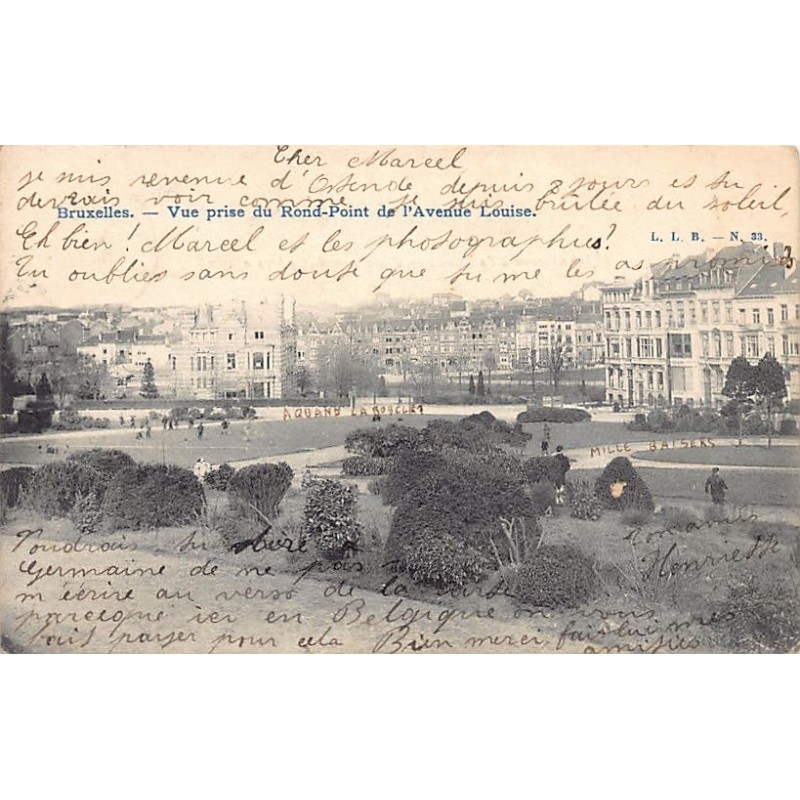 Cher Marcel
je suis revenue d'Ostende depuis 2 jours et tu
devrais voir comme je suis brûlée du soleil,
Bruxelles. — Vue prise du Rond-Point de l'Avenue Louise.
Eh bien! Marcel et les photographies?
L. L. B. — N. 33.
Tu oublies sans doute que tu me les as promis
A QUAND LA BOUCLE?
MILLE BAISERS
Voudrais tu dire
Germaine de ne pas
m'écrire au verso de la carte
parceque ici en Belgique on nous
fait payer pour cela Bien merci, fais lui mes
amitiés
Romanies
Henriette